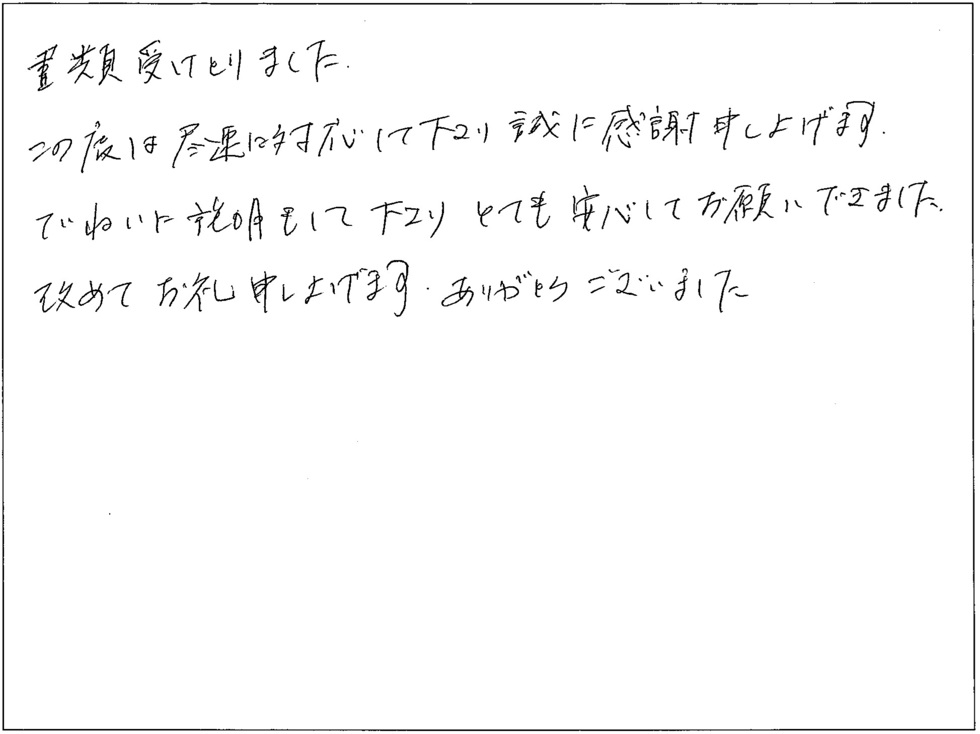 書類受けとりました.
この度は尽速に対応して下さり誠に感謝申し上げます.
ていねいに説明もして下さり とても安心してお願いできました.
改めてお礼申し上げます. ありがとうございました